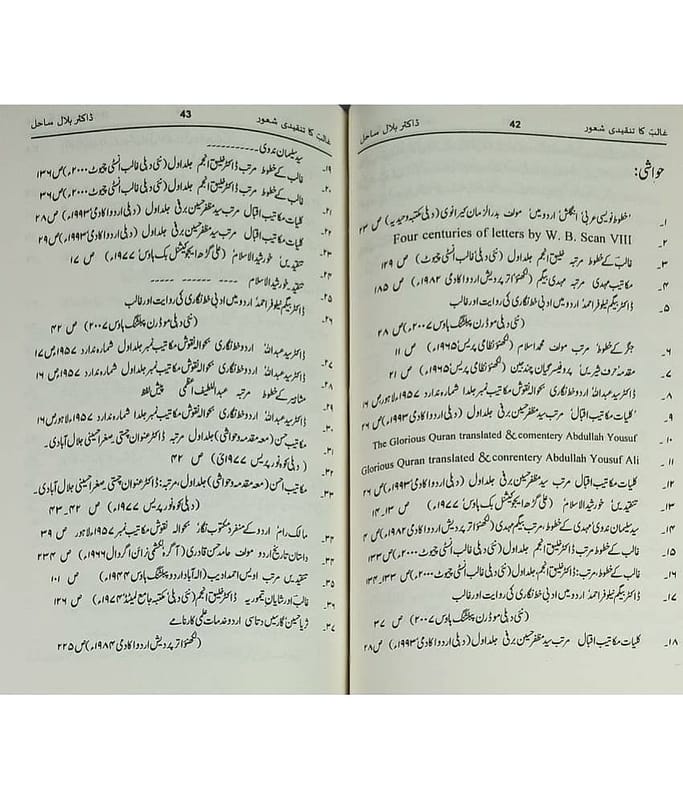 غالب کا تنقیدی شعور 42 ڈاکٹر بلال ساحل
حواشی:
۱۔ 'خطوط نویسی عربی' انگلش' اردو میں' مولف بدر الزمان کیرانوی (دہلی مکتبہ وحیدیہ) ص ۲۳
۲۔ Four centuries of letters by W. B. Scan VIII
۳۔ غالب کے خطوط مرتبہ خلیق انجم جلد اول (نئی دہلی غالب انسٹی چیوٹ) ص ۱۲۹
۴۔ مکاتیب مہدی مرتبہ مہدی بیگم (لکھنؤ اتر پردیش اردو اکادمی ۱۹۸۲ء) ص ۱۸۵
۵۔ ڈاکٹر بیگم نیلوفر احمد' اردو میں ادبی خط نگاری کی روایت اور غالب
(نئی دہلی موڈرن پبلشنگ ہاوس ۲۰۰۷) ص ۲۸
۶۔ جگر کے خطوط' مرتب مولف محمد اسلام (لکھنؤ نظامی پریس ۱۹۶۵ء) ص ۱۱
۷۔ مقدمہ حرف شیریں' پروفیسر گیان چند جین (لکھنؤ نظامی پریس ۱۹۶۵ء) ص ۲۱
۸۔ ڈاکٹر سید عبداللہ' اردو خط نگاری بحوالہ نقوش مکاتیب نمبر جلد اول شمارہ ندارد ۱۹۵۷ء لاہور ص ۱۶
۹۔ 'کلیات مکاتیب اقبال' مرتب سید مظفر حسین برنی جلد اول (دہلی اردو اکادمی ۱۹۹۳ء) ص ۲۶
۱۰۔ The Glorious Quran translated & comentery Abdullah Yousuf
۱۱۔ Glorious Quran translated & conrentery Abdullah Yousuf Ali
۱۲۔ کلیات مکاتیب اقبال مرتب سید مظفر حسین برنی جلد اول (دہلی اردو اکادمی ۱۹۹۳ء) ص ۲۶
۱۳۔ تنقیدیں' خورشید الاسلام (علی گڑھ ایجوکیشنل بک ہاوس ۱۹۷۷ء) ص ۱۳۔۱۴
۱۴۔ سید سلیمان ندوی' مہدی کے خطوط، مرتب بیگم مہدی (لکھنؤ اتر پردیش اردو اکادمی ۱۹۸۲ء) ص ۴
۱۵۔ غالب کے خطوط، مرتب ڈاکٹر خلیق انجم، جلد اول (نئی دہلی غالب انسٹی چیوٹ ۲۰۰۰ء) ص ۱۳۳
۱۶۔ غالب کے خطوط، مرتب: ڈاکٹر خلیق انجم، جلد اول (نئی دہلی غالب انسٹی چیوٹ ۲۰۰۰ء) ص ۱۳۳۔۱۳۴
۱۷۔ ڈاکٹر بیگم نیلوفر احمد' اردو میں ادبی خط نگاری کی روایت اور غالب
(نئی دہلی موڈرن پبلشنگ ہاوس ۲۰۰۷) ص ۳۷
۱۸۔ کلیات مکاتیب اقبال مرتب سید مظفر حسین برنی جلد اول (دہلی اردو اکادمی ۱۹۹۳ء) ص ۲۸
غالب کا تنقیدی شعور 43 ڈاکٹر بلال ساحل
سید سلیمان ندوی ـــــــــ
۱۹۔ غالب کے خطوط مرتب ڈاکٹر خلیق انجم جلد اول (نئی دہلی غالب انسٹی چیوٹ ۲۰۰۰ء) ص ۱۳۶
۲۰۔ غالب کے خطوط مرتب ڈاکٹر خلیق انجم جلد اول (نئی دہلی غالب انسٹی چیوٹ ۲۰۰۰ء) ص ۳۶
۲۱۔ کلیات مکاتیب اقبال مرتب سید مظفر حسین برنی جلد اول (دہلی اردو اکادمی ۱۹۹۳ء) ص ۲۸
۲۲۔ کلیات مکاتیب اقبال مرتب سید مظفر حسین برنی جلد اول (دہلی اردو اکادمی ۱۹۹۳ء) ص ۲۹
۲۳۔ تنقیدیں' خورشید الاسلام (علی گڑھ ایجوکیشنل بک ہاوس ۱۹۷۷ء) ص ۱۷
۲۴۔ تنقید خورشید الاسلام ـــ ـــ ـــ
۲۵۔ ڈاکٹر بیگم نیلوفر احمد' اردو میں ادبی خط نگاری کی روایت اور غالب
۲۶۔ (نئی دہلی موڈرن پبلشنگ ہاوس ۲۰۰۷) ص ۴۲
ڈاکٹر سید عبداللہ' اردو خط نگاری بحوالہ نقوش مکاتیب نمبر جلد اول شمارہ ندارد ۱۹۵۷ء لاہور ص ۱۷
۲۷۔ ڈاکٹر سید عبداللہ' اردو خط نگاری بحوالہ نقوش مکاتیب نمبر جلد اول شمارہ ندارد ۱۹۵۷ء لاہور ص ۱۶
۲۸۔ مشاہیر کے خطوط مرتبہ عبداللطیف اعظمی پیش لفظ
۲۹۔ ڈاکٹر سید عبداللہ' اردو خط نگاری بحوالہ نقوش مکاتیب نمبر جلد اول شمارہ ندارد ۱۹۵۷ء لاہور ص ۱۶
۳۰۔ مکاتیب حسن (معہ مقدمہ و حواشی) جلد اول مرتبہ ڈاکٹر عنوان چشتی صغیر احسینی جلال آبادی۔
۳۱۔ (دہلی کوہ نور پریس ۱۹۷۷ئ) ص ۴۲
۳۲۔ مکاتیب احسن (معہ مقدمہ و حواشی) جلد اول، مرتبہ: ڈاکٹر عنوان چشتی، صغیر احسینی جلال آبادی۔
(دہلی کوہ نور پریس ۱۹۷۷ء) ص ۴۲۔۴۳
۳۳۔ مالک رام' اردو کے منفرد مکتوب نگار' بحوالہ نقوش مکاتیب نمبر ۱۹۵۷ء لاہور ص ۳۹
۳۴۔ داستان تاریخ اردو مولف حامد حسن قادری (آگرہ لکشمی نرائن اگروال ۱۹۶۶ء) ص ۲۳۴
۳۵۔ تنقیدیں مرتب اویس احمد ادیب (الہ آباد اردو پبلشنگ ہاوس ۱۹۴۴ء) ص ۱۰۱
۳۶۔ غالب اور شاہان تیموریہ ڈاکٹر خلیق انجم (نئی دہلی مکتبہ جامعہ لمیٹڈ ۱۹۷۴ء) ص ۱۲۶
۳۷۔ ثریا حسین' گارسیں دتاسی' اردو خدمات علمی کارنامے
(لکھنؤ اتر پردیش اردو اکادمی ۱۹۸۴ء) ص ۲۲۵